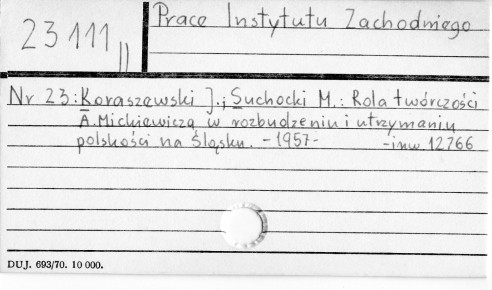 Prace Instytutu Zachodniego
23111
Nr 23: Koraszewski J. i Suchocki M.: Rola twórczości
A. Mickiewicza w rozbudzeniu i utrzymaniu
polskości na Śląsku. - 1957 -  - inw. 12766
DUJ. 693/70. 10 000.